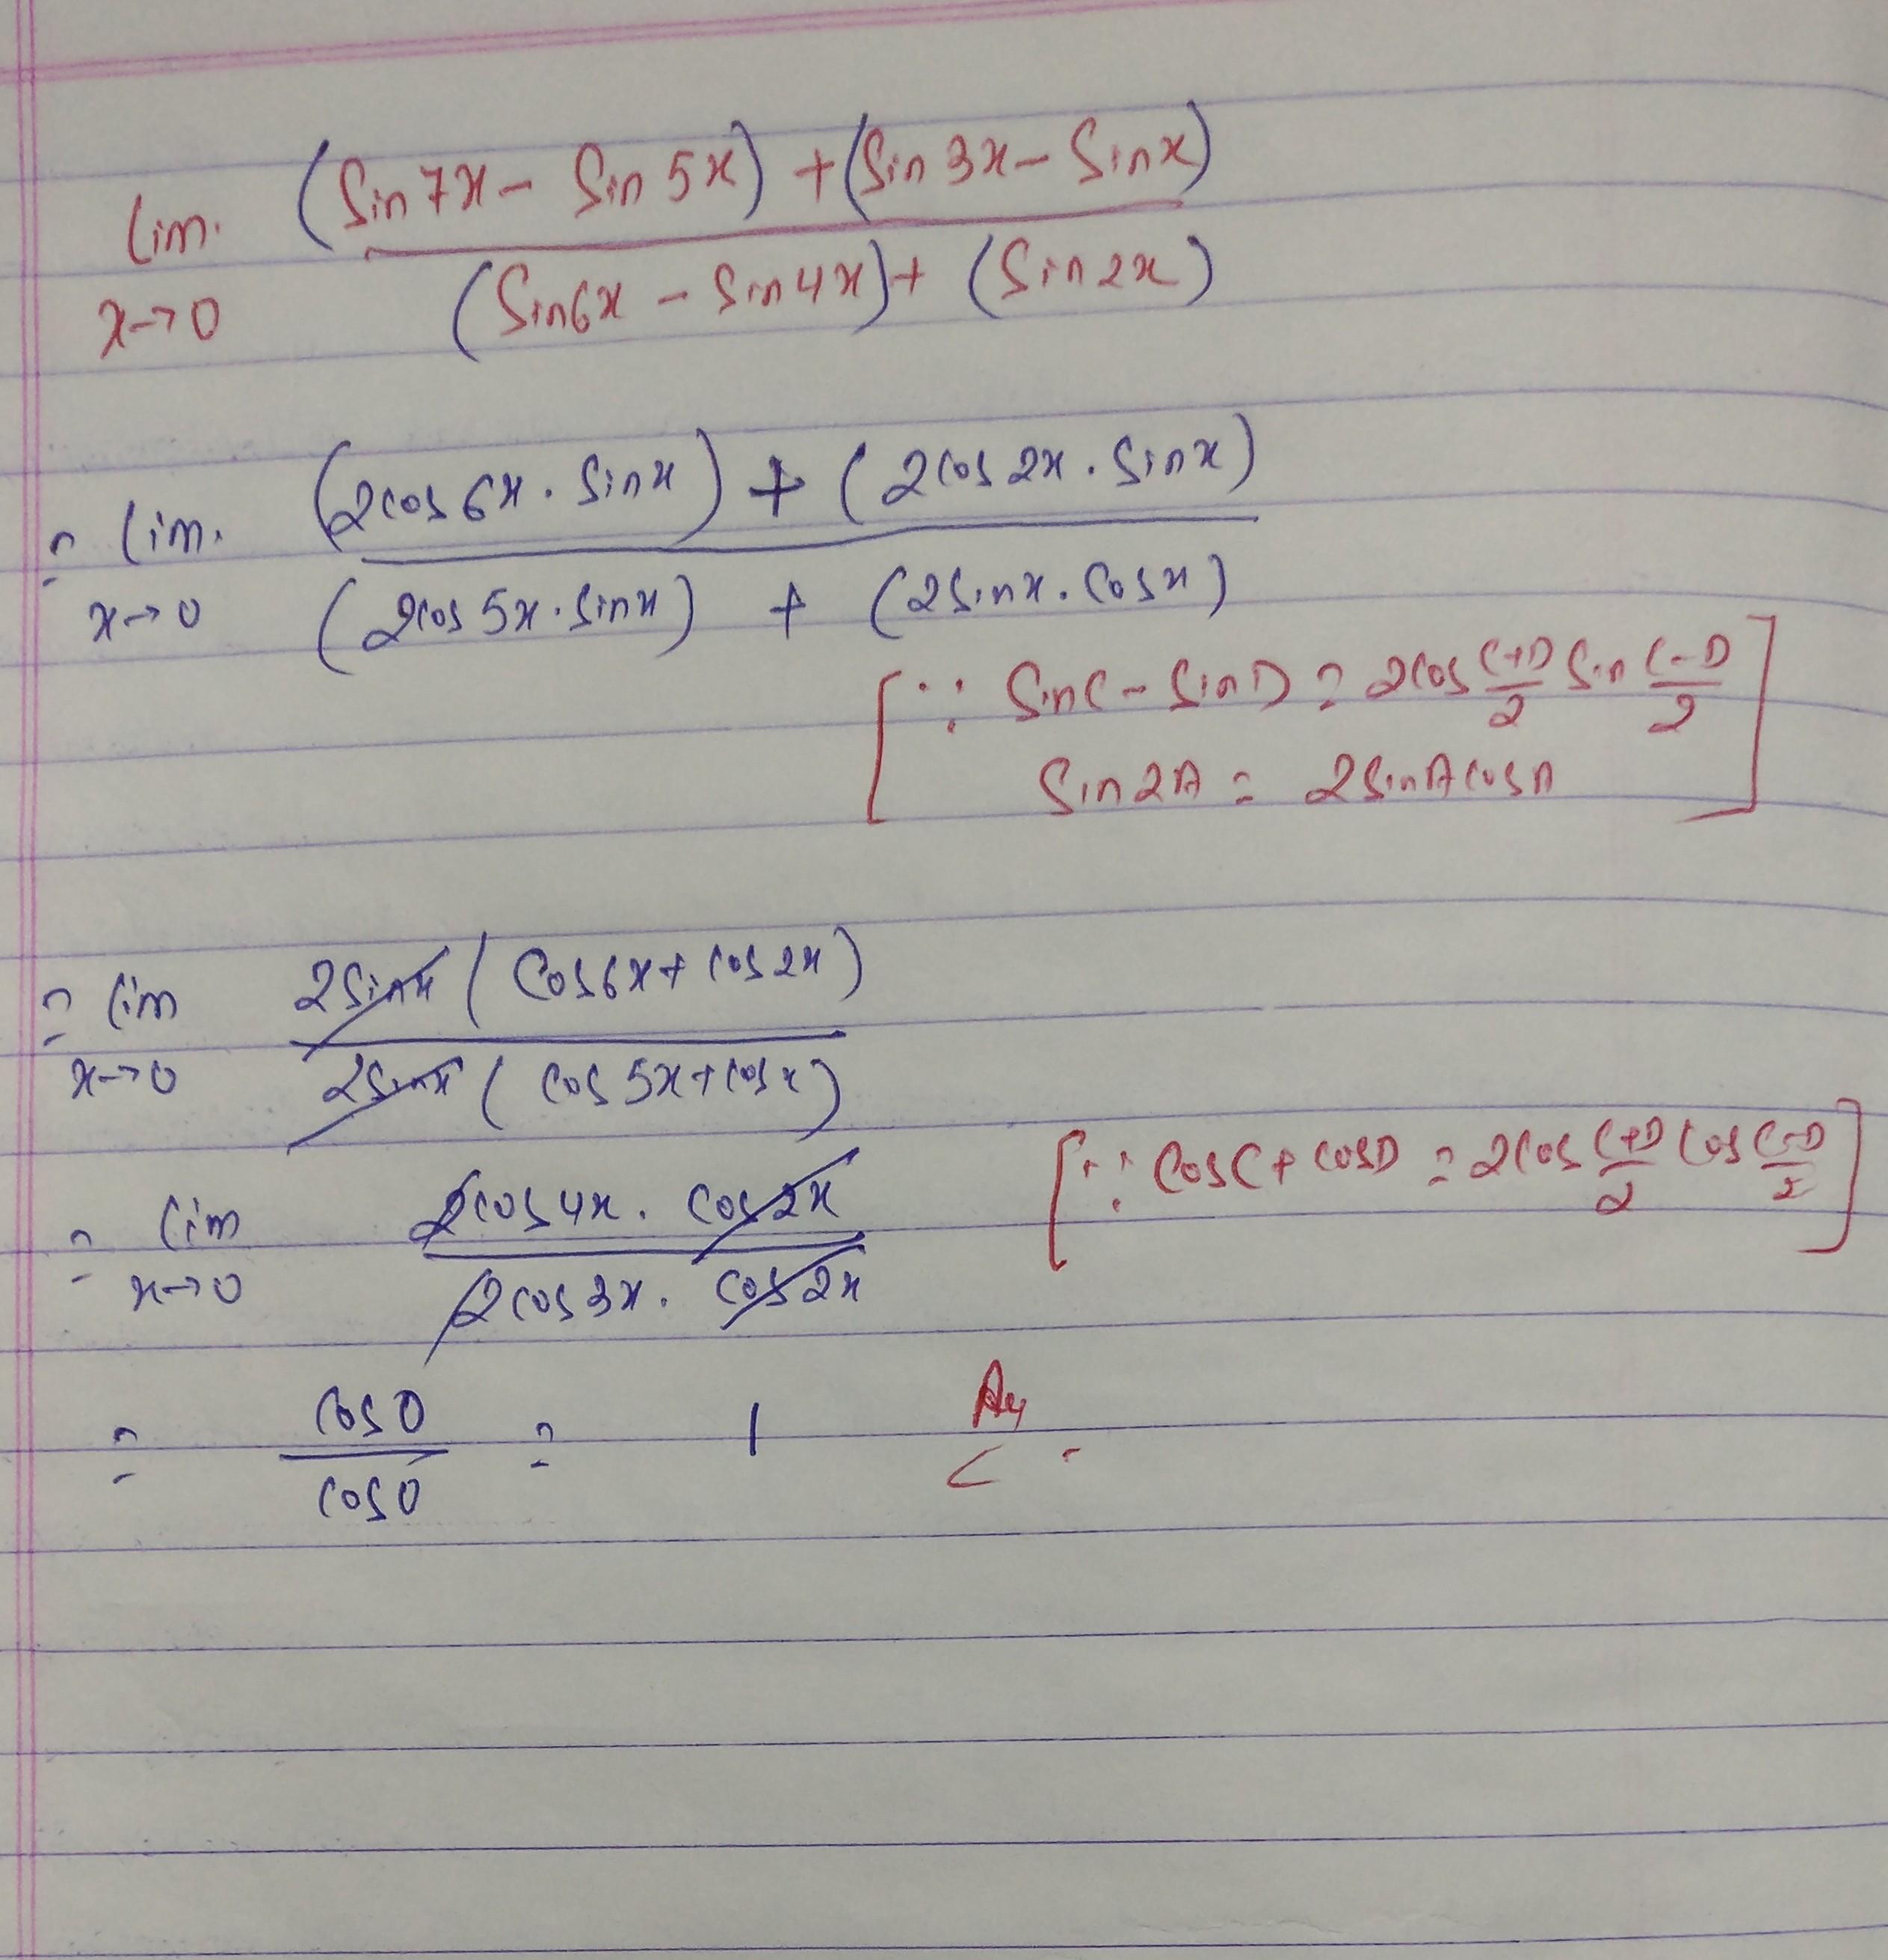 lim. (Sin7x - Sin5x) + (Sin3x - Sinx)
x→0 (Sin6x - Sin4x) + (Sin2x)
= lim. (2cos6x . Sinx) + (2cos2x . Sinx)
x→0 (2cos5x . Sinx) + (2Sinx . Cosx)
[∵ SinC - SinD = 2cos C+D/2 Sin C-D/2
Sin2A = 2SinA cosA]
= lim 2Sinx (Cos6x + cos2x)
x→0 2Sinx (Cos5x + cosx)
= lim 2cos4x . Cos2x [∵ CosC + CosD = 2Cos C+D/2 Cos C-D/2]
x→0 2cos3x . Cos2x
= Cos0/Cos0 = 1